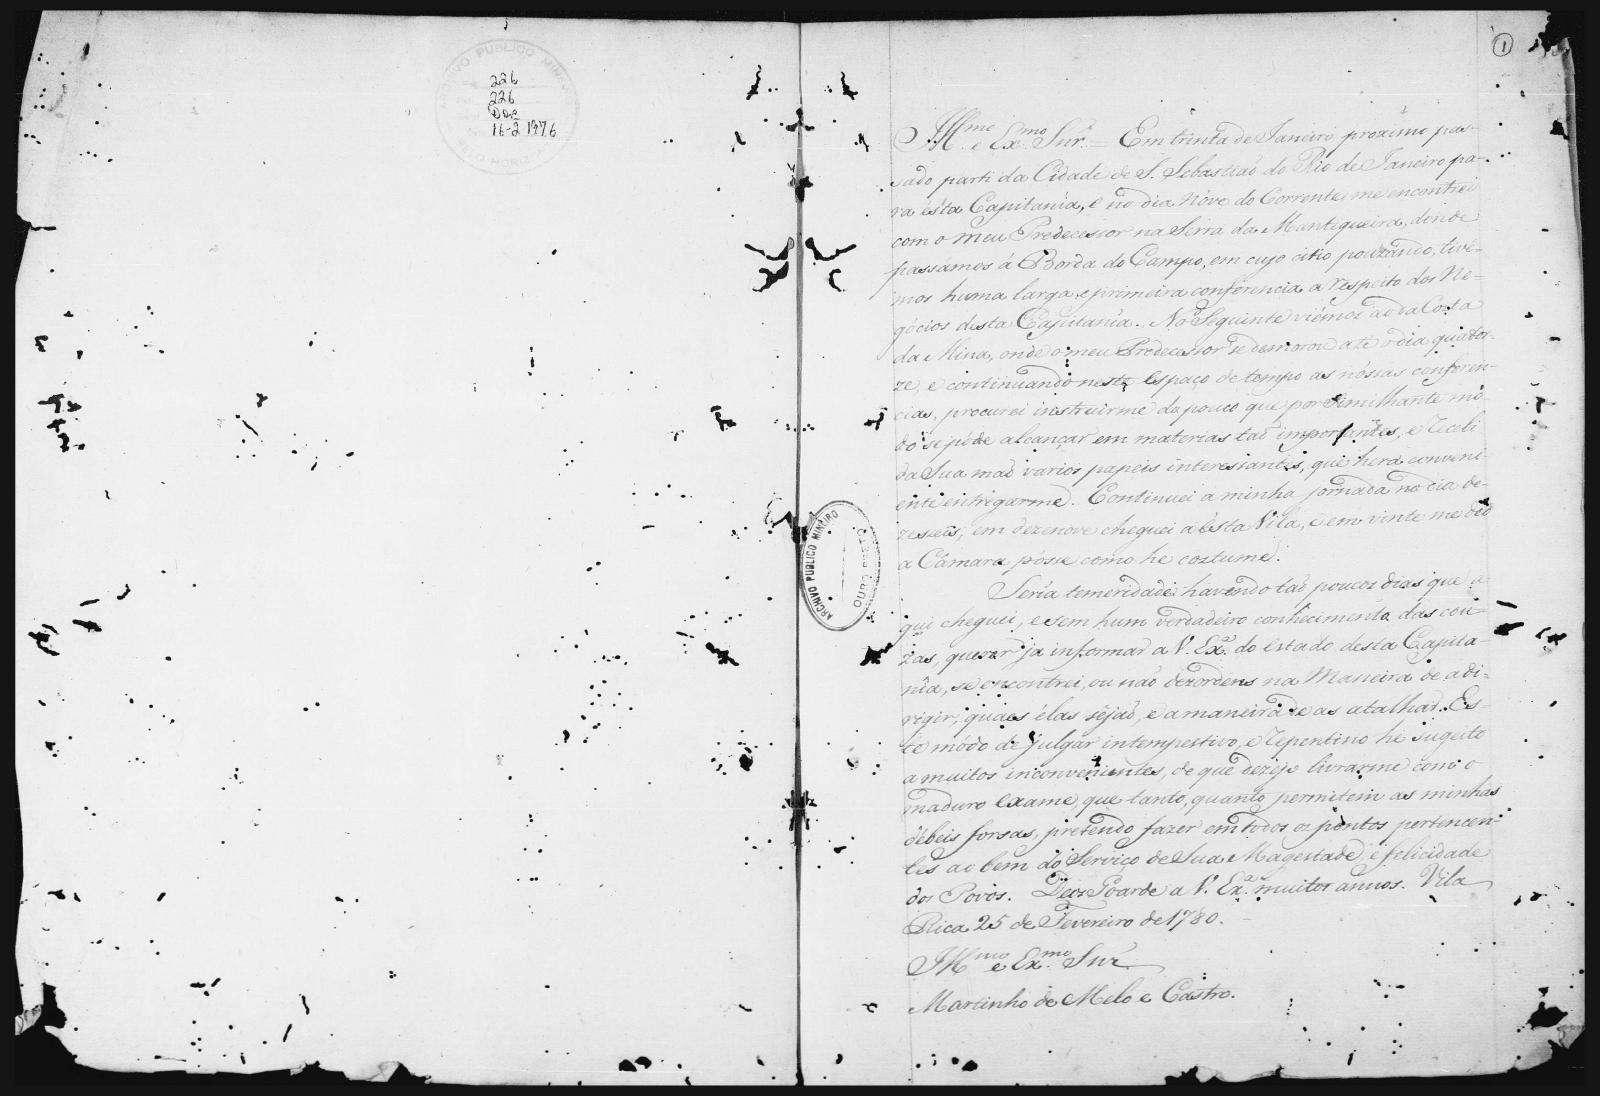 ARCHIVO PUBLICO MINEIRO
BELO HORIZONTE
226
226
Doc
16-2 1976
1
Ill.mo e Ex.mo Snr.' = Em trinta de Janeiro proximo pas-
sado parti da Cidade de S. Sebastiaõ do Rio de Janeiro pa-
ra ésta Capitanîa, e no dia nóve do Corrente me encontrei
com o meu Predecessor na Serra da Mantiqueira, donde
passámos á Borda do Campo, em cujo citio pouzando, tive-
mos huma larga, e primeira conferencia a respeito dos Ne-
gócios desta Capitanîa. No Seguinte viémos ao da Costa
da Mina, onde o meu Predecessor se demorou até o dia quator-
ze, e continuando neste espaço de tempo as nóssas conferen-
cias, procurei instruirme do pouco que por Similhante mó-
do se póde alcançar em materias taõ importantes, e recebi
da Sua maõ varios papeis interessantes, que hera conveni-
ente entregarme. Continuei a minha jornada no dia de-
zeseis, em dezenove cheguei a ésta Vila, e em vinte me deo
a Câmara pósse como he costume.
Sería temeridade havendo taõ poucos dias que a-
qui cheguei, e sem hum verdadeiro conhecimento das cou-
zas, querer ja informar a V. Ex.ª do estado desta Capita-
nîa, se encontrei, ou naõ dezordens na Maneira de a di-
rigir, quaes élas séjaõ, e a maneira de as atalhar. Es-
te módo de julgar intempestivo, e repentino he sugeito
a muitos inconvenientes, de que dezejo livrarme com o
maduro exame, que tanto, quanto permitem as minhas
débeis forsas, pretendo fazer em todos os pontos pertencen-
tes ao bem do Serviço de Sua Magestade, e felicidade
dos Povos. Deos Goarde a V. Ex.ª muitos annos. Vila
Rica 25 de Fevereiro de 1780. -
Ill.mo e Ex.mo Snr.
Martinho de Melo e Castro.
ARCHIVO PUBLICO MINEIRO
OURO PRETO